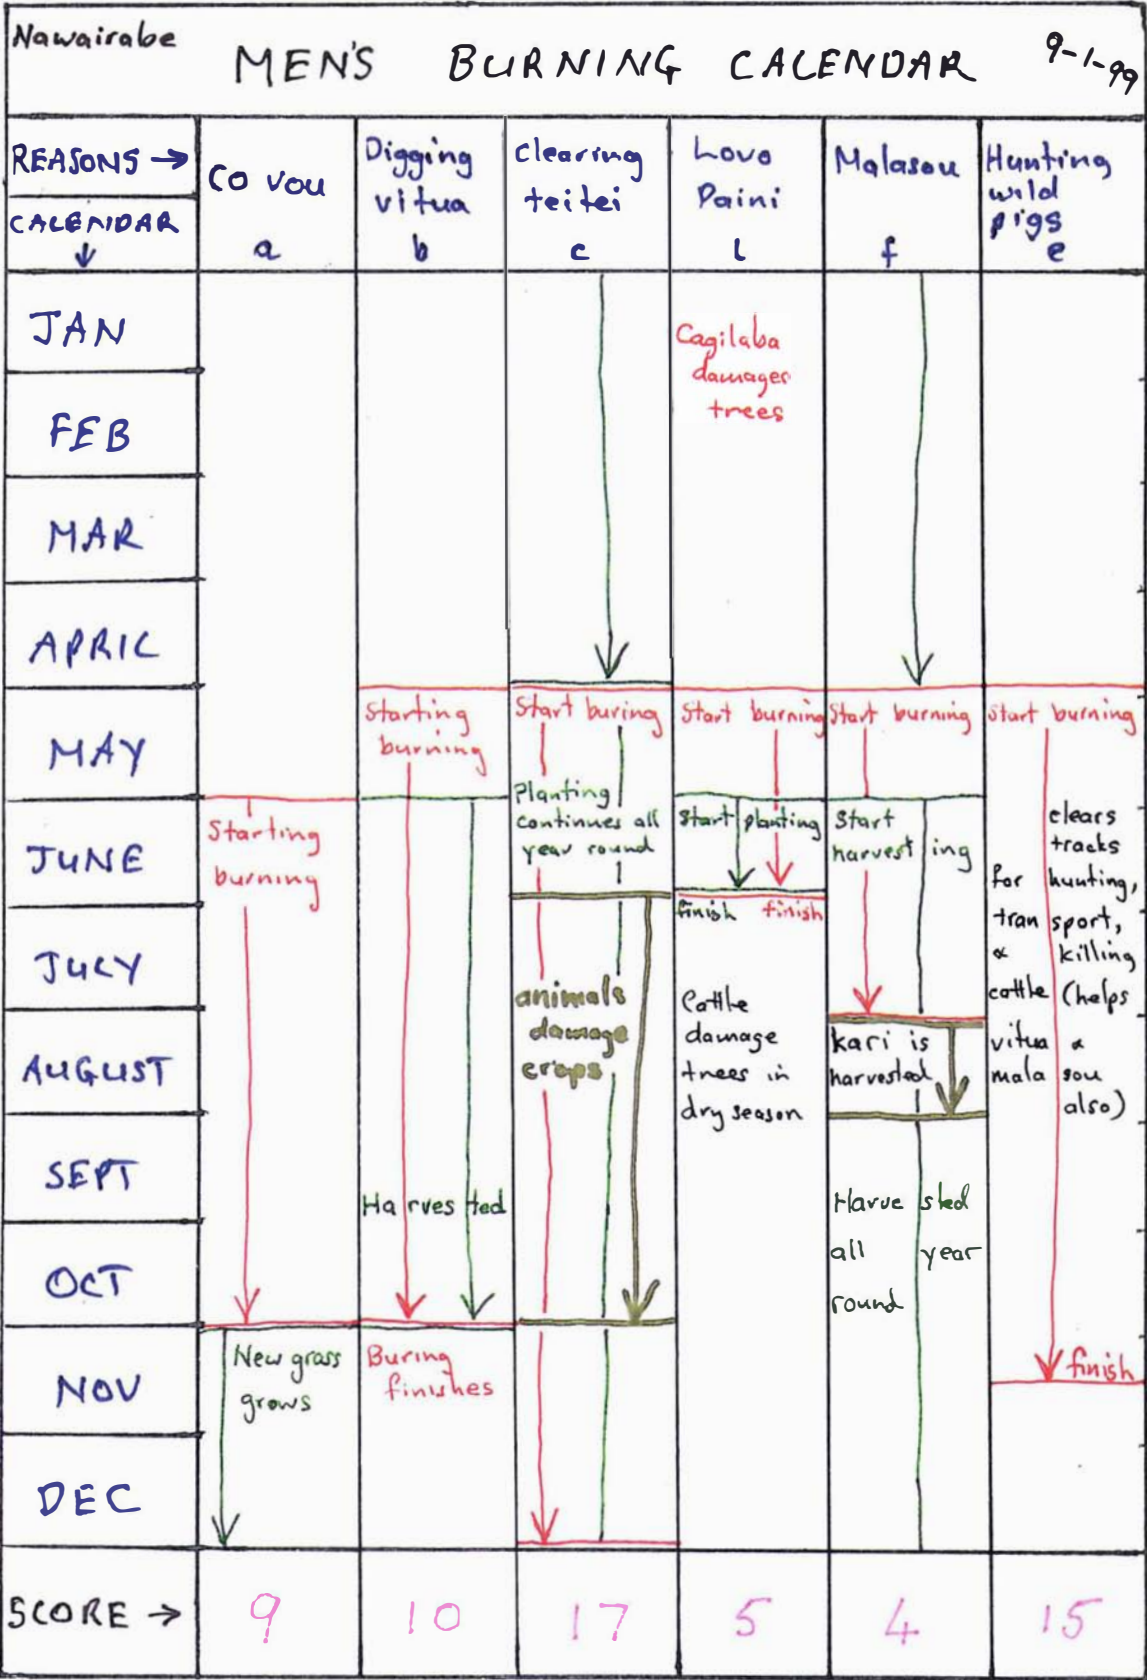 Nawairabe
MEN'S BURNING CALENDAR
9-1-99
REASONS →
CALENDAR ↓
Co vou
a
Digging
vitua
b
Clearing
teitei
c
Lovo
Paini
l
Malasou
f
Hunting
wild
pigs
e
JAN
FEB
MAR
APRIL
MAY
JUNE
JULY
AUGUST
SEPT
OCT
NOV
DEC
SCORE →
Starting
burning
New grass
grows
9
Starting
burning
Harvested
Buring
finishes
10
Start buring
Planting
continues all
year round
animals
damage
crops
17
Cagilaba
damages
trees
Start burning
Start planting
finish finish
Cattle
damage
trees in
dry season
5
Start burning
Start
harvesting
kari is
harvested
Harvested
all year
round
4
Start burning
clears
tracks
for hunting,
transport,
& killing
cattle (helps
vitua &
malasou
also)
finish
15